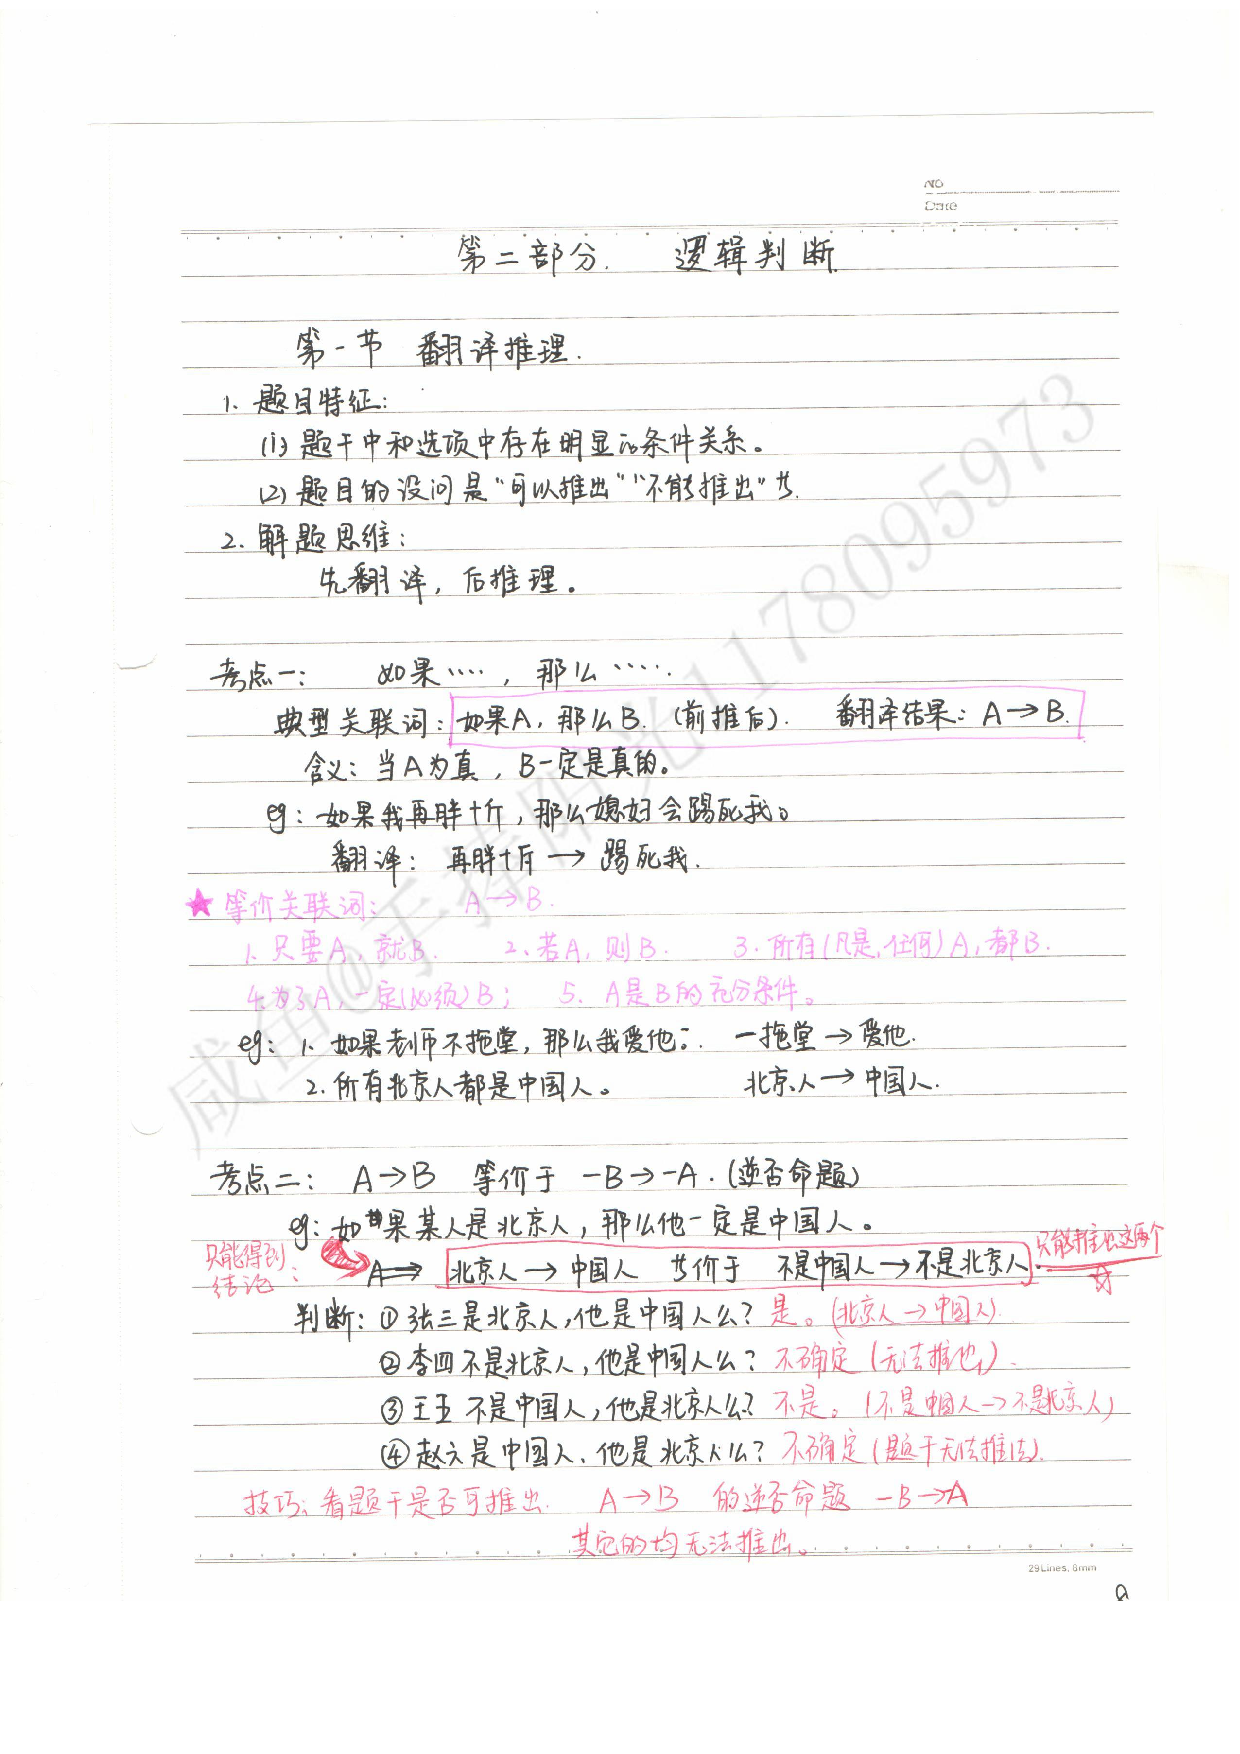 NO
Date
第二部分. 逻辑判断
第一节 翻译推理.
1. 题目特征:
(1) 题干中和选项中存在明显的条件关系。
(2) 题目的设问是"可以推出""不能推出"等.
2. 解题思维:
先翻译, 后推理。
考点一: 如果····, 那么····.
典型关联词: 如果A, 那么B. (前推后). 翻译结果: A→B.
含义: 当A为真, B一定是真的。
eg: 如果我再胖十斤, 那么媳妇会踢死我。
翻译: 再胖十斤 → 踢死我.
★等价关联词: A→B.
1. 只要A, 就B. 2. 若A, 则B. 3. 所有(凡是,任何)A, 都B.
4. 为了A, 一定(必须)B; 5. A是B的充分条件。
eg: 1. 如果老师不拖堂, 那么我爱他. 一拖堂 → 爱他.
2. 所有北京人都是中国人。 北京人 → 中国人.
考点二: A→B 等价于 -B→-A. (逆否命题)
eg: 如果某人是北京人, 那么他一定是中国人。
只能得到结论: A⟹ 北京人 → 中国人 等价于 不是中国人→不是北京人. 只能推出这两个 ☆
判断: ① 张三是北京人, 他是中国人么? 是。(北京人 → 中国人).
② 李四不是北京人, 他是中国人么? 不确定 (无法推出).
③ 王五不是中国人, 他是北京人么? 不是。(不是中国人→不是北京人)
④ 赵六是中国人, 他是北京人么? 不确定 (题干无法推法).
技巧: 看题干是否可推出. A→B 的逆否命题 -B→A
其它的均无法推出。
29Lines. 8mm
咸鱼@手捧阳光1178095973